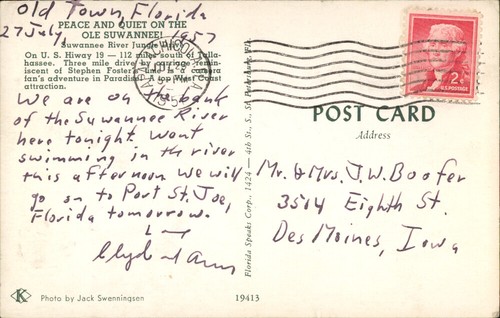 Old Town, Florida
27 July, 1957
PEACE AND QUIET ON THE
OLE SUWANNEE!
Suwannee River Jungle
On U. S. Hiway 19 — 112 miles south of Talla-
hassee. Three mile drive by carriage, remin-
iscent of Stephen Foster's time is a camera
fan's adventure in Paradise. A top West Coast
attraction.
We are on the bank
of the Suwannee River
here tonight. Went
swimming in the river
this afternoon. We will
go on to Port St. Joe,
Florida tomorrow.
Clyde & Ann
2¢
U.S. POSTAGE
POST CARD
Address
Mr. & Mrs. J.W. Boofer
3514 Eighth St.
Des Moines, Iowa
Florida Speaks Corp., 1424 — 4th St., S., St. Petersburg, Fla.
K
Photo by Jack Swenningsen
19413